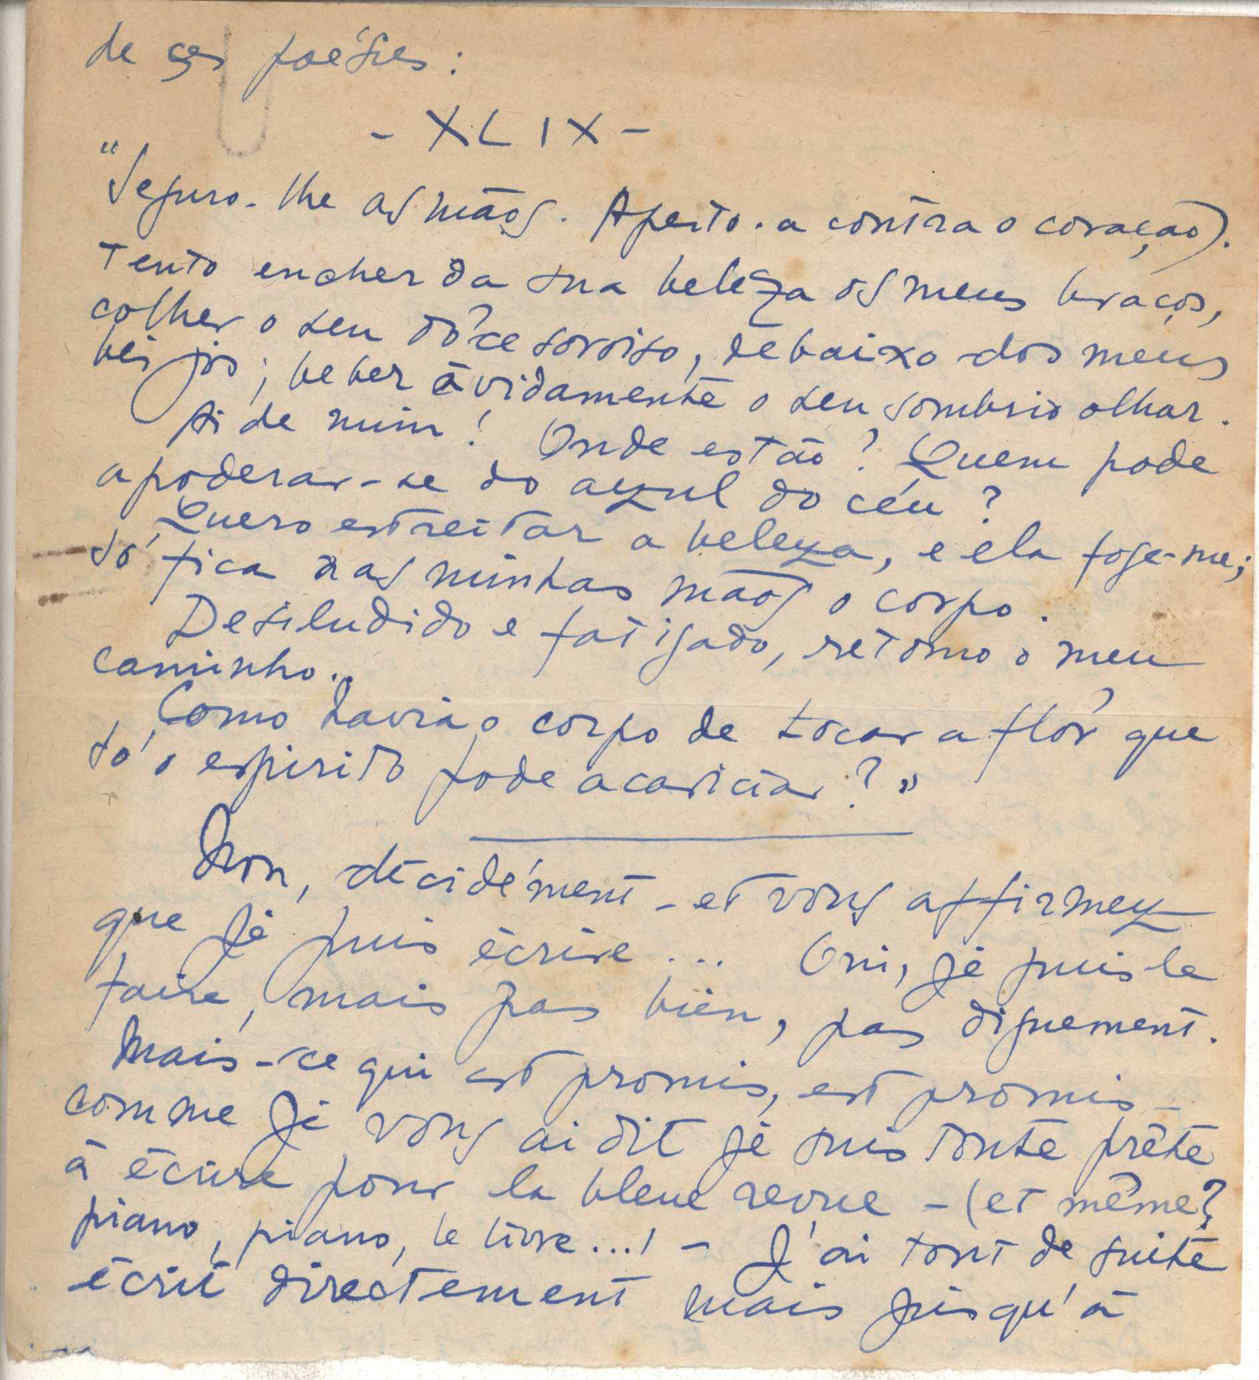 de ces poésies :
- XLIX -
"Seguro-lhe as mãos. Aperto-a contra o coração).
Tento encher da sua beleza os meus braços,
colher o seu dôce sorriso, debaixo dos meus
beijos; beber àvidamente o seu sombrio olhar.
Ai de mim! Onde estão? Quem pode
apoderar-se do azul do céu?
Quero estreitar a beleza, e ela foge-me;
só fica nas minhas mãos o corpo.
Desiludido e fatigado, retomo o meu
caminho.
Como havia o corpo de tocar a flôr que
só o espirito pode acariciar?"
Non, décidément - et vous affirmez
que je puis écrire... Oui, je puis le
faire, mais pas bien, pas dignement.
Mais - ce qui est promis, est promis -
comme je vous ai dit je suis toute prête
à écrire pour la bleue revue - (et même?
piano, piano, le livre...! - J'ai tout de suite
écrit directement mais jusqu'à